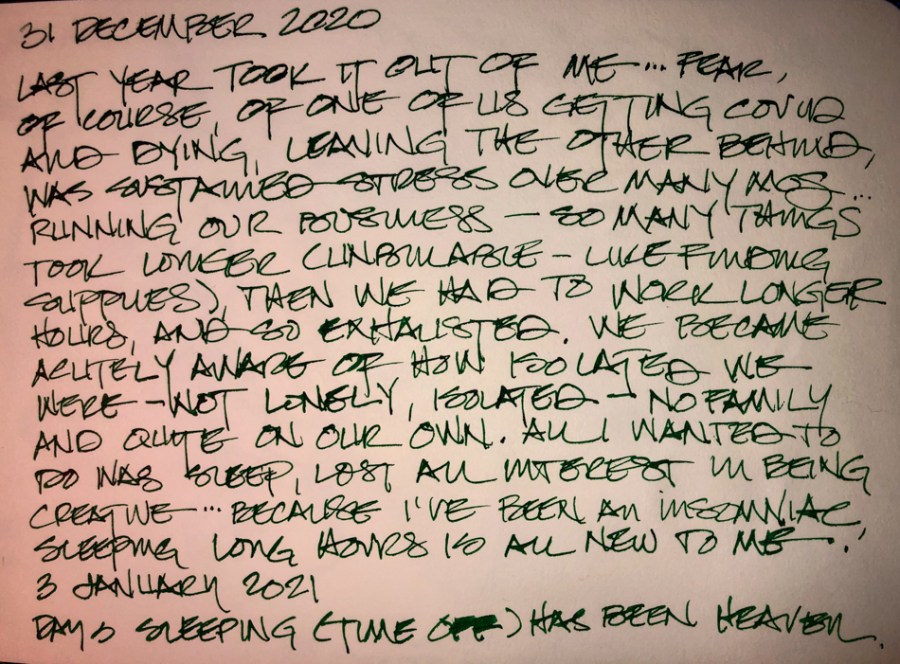 31 DECEMBER 2020
LAST YEAR TOOK IT OUT OF ME... FEAR,
OF COURSE, OF ONE OF US GETTING COVID
AND DYING, LEAVING THE OTHER BEHIND,
WAS SUSTAINED STRESS OVER MANY MOS...
RUNNING OUR BUSINESS – SO MANY THINGS
TOOK LONGER (UNBILLABLE – LIKE FINDING
SUPPLIES), THEN WE HAD TO WORK LONGER
HOURS, AND SO EXHAUSTED. WE BECAME
ACUTELY AWARE OF HOW ISOLATED WE
WERE – NOT LONELY, ISOLATED – NO FAMILY
AND QUITE ON OUR OWN. ALL I WANTED TO
DO WAS SLEEP, LOST ALL INTEREST IN BEING
CREATIVE... BECAUSE I'VE BEEN AN INSOMNIAC,
SLEEPING LONG HOURS IS ALL NEW TO ME.!
3 JANUARY 2021
DAYS SLEEPING (TIME OFF) HAS BEEN HEAVEN.